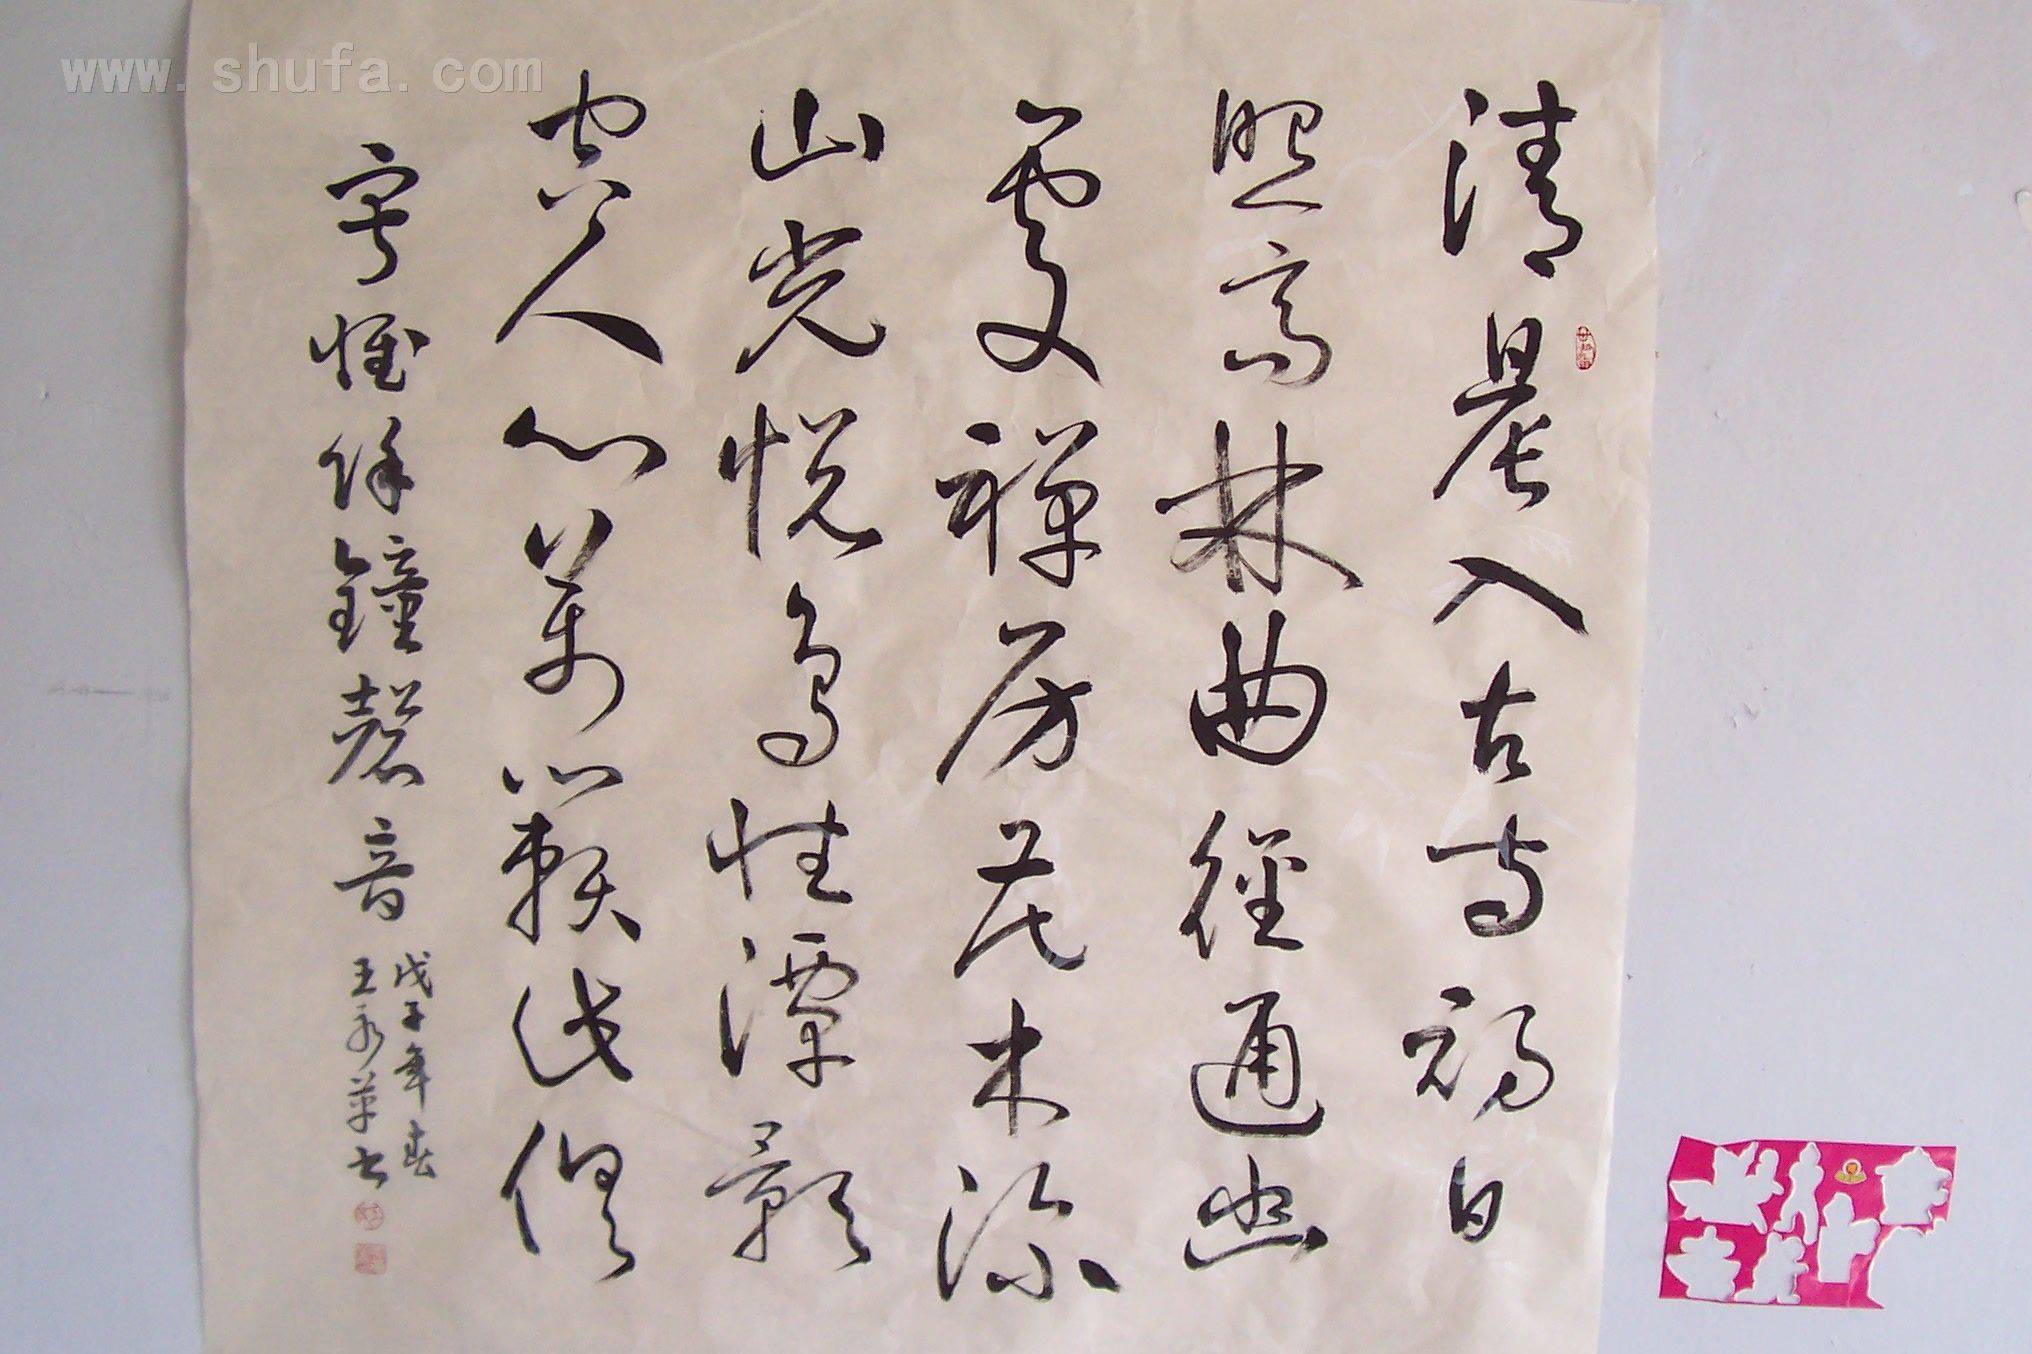 www.shufa.com
清晨入古寺初日
照高林曲徑通幽
處禪房花木深
山光悅鳥性潭影
空人心萬籟此俱
寂惟餘鐘磬音
戊子年春
王永书